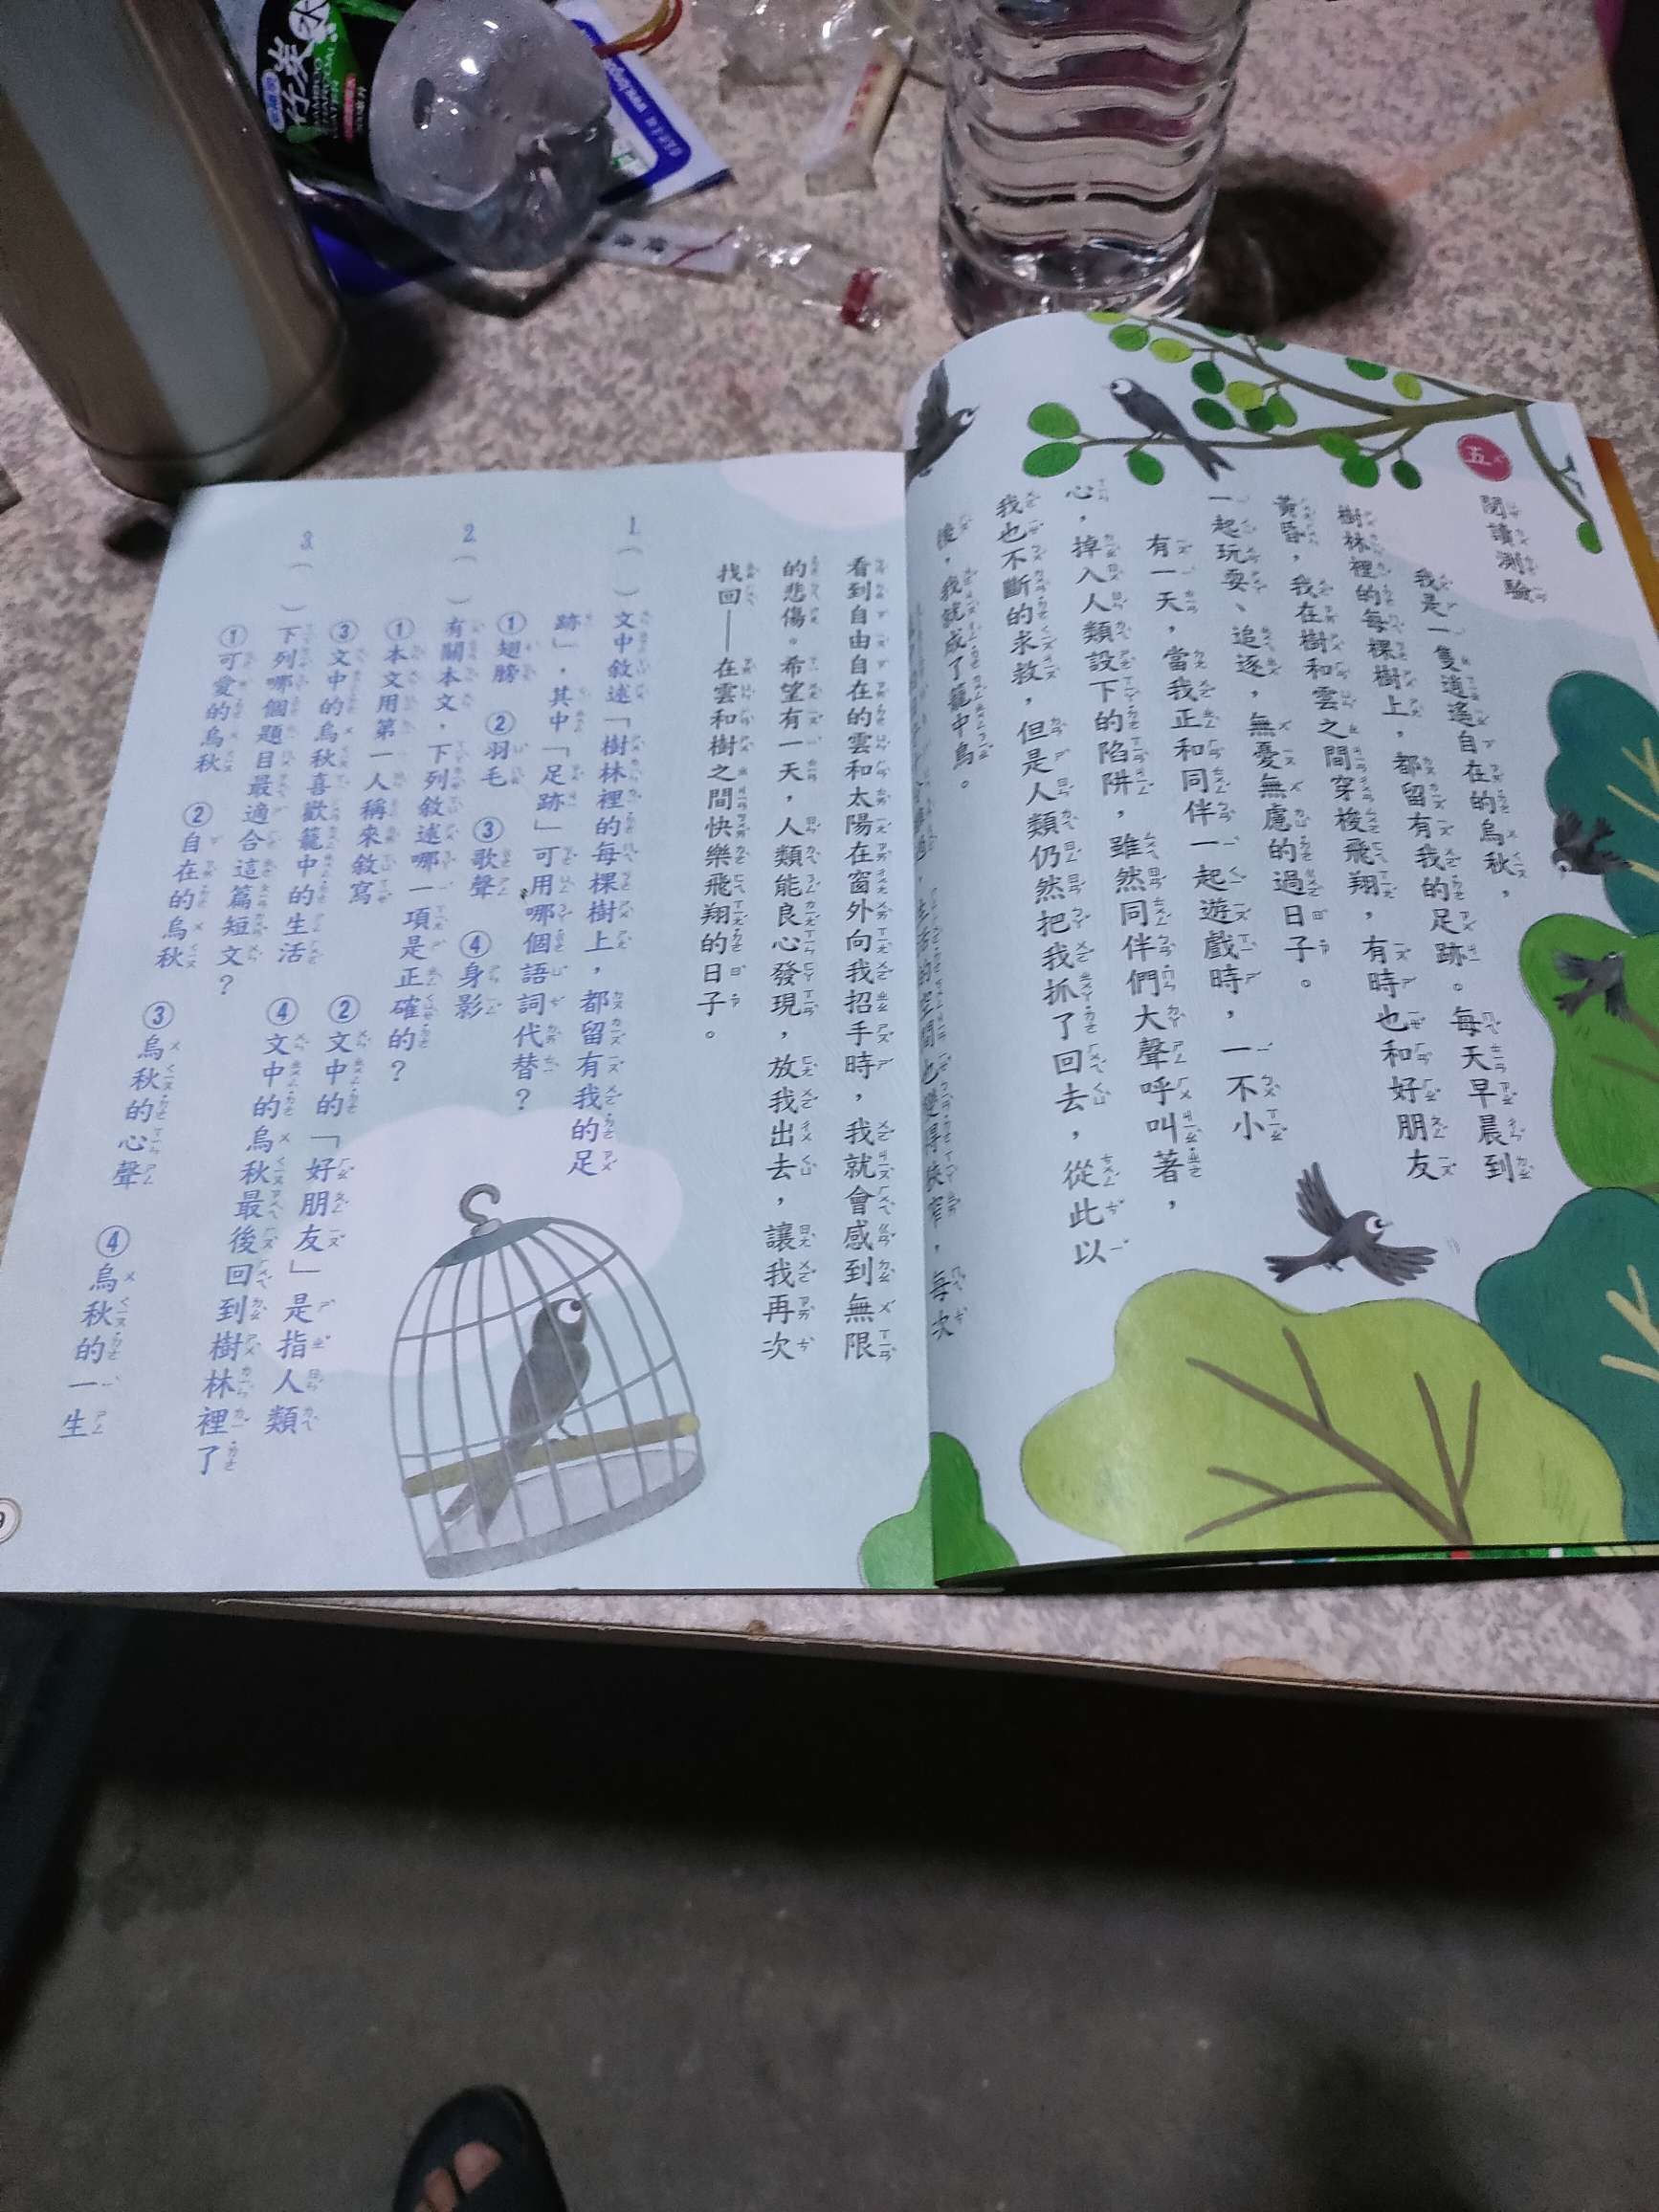 五
閱讀測驗
我是一隻逍遙自在的烏秋，
樹林裡的每棵樹上，都留有我的足跡。每天早晨到
黃昏，我在樹和雲之間穿梭飛翔，有時也和好朋友
一起玩耍、追逐，無憂無慮的過日子。
有一天，當我正和同伴一起遊戲時，一不小
心，掉入人類設下的陷阱，雖然同伴們大聲呼叫著，
我也不斷的求救，但是人類仍然把我抓了回去，從此以
後，我就成了籠中鳥。
生活的空間也變得狹窄，每次
看到自由自在的雲和太陽在窗外向我招手時，我就會感到無限
的悲傷。希望有一天，人類能良心發現，放我出去，讓我再次
找回——在雲和樹之間快樂飛翔的日子。
1.（ ）文中敘述「樹林裡的每棵樹上，都留有我的足
跡」，其中「足跡」可用哪個語詞代替？
①翅膀 ②羽毛 ③歌聲 ④身影
2.（ ）有關本文，下列敘述哪一項是正確的？
①本文用第一人稱來敘寫 ②文中的「好朋友」是指人類
③文中的烏秋喜歡籠中的生活 ④文中的烏秋最後回到樹林裡了
3.（ ）下列哪個題目最適合這篇短文？
①可愛的烏秋 ②自在的烏秋 ③烏秋的心聲 ④烏秋的一生
9
竹炭水
BAMBOO
CHARCOAL
WATER